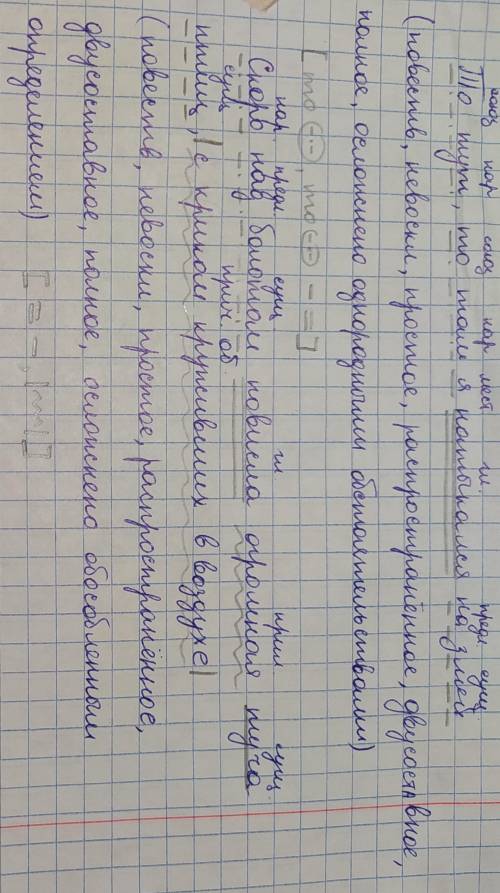 союз нар союз нар мест гл. предл сущ
То тут, то там я натыкался на змей
(повеств, невоскл, простое, распространённое, двусоставное,
полное, осложнено однородными обстоятельствами)
[то, то - =]
нар предл сущ гл. прил сущ
Скоро над болотом повисла огромная туча
сущ прич. об.
птиц, |с криком круживших в воздухе|
(повеств, невоскл, простое, распространённое,
двусоставное, полное, осложнено обособленным
определением) [= -, |~~|]